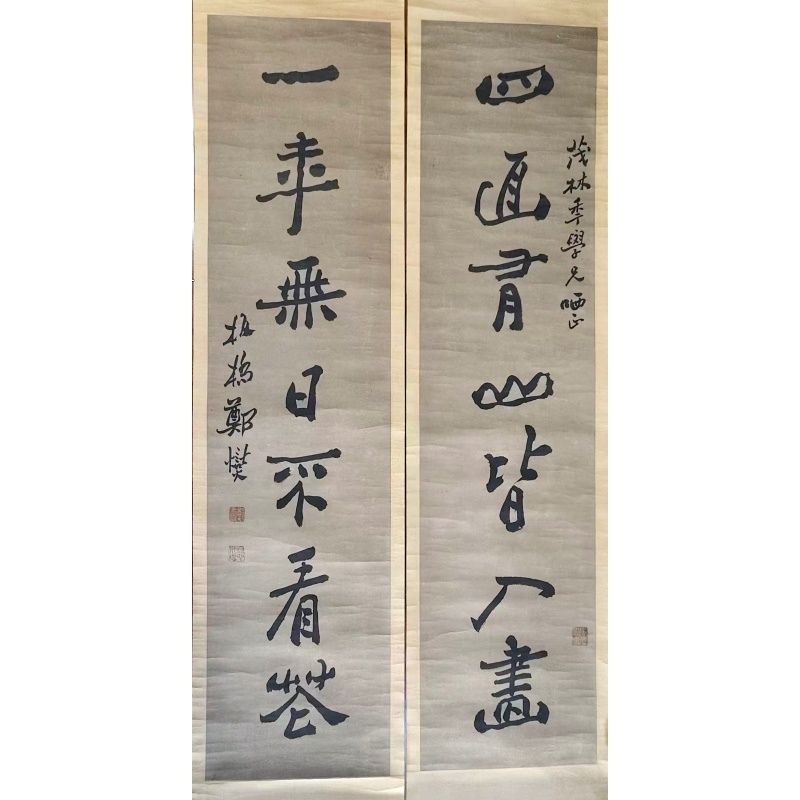 茂林年學兄哂正
四面有山皆入畫
一年無日不看花
板橋鄭燮